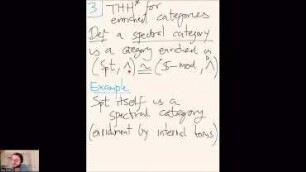 3 THH* for
enriched categories
Def a spectral category
is a category enriched in
(Spt, ∧) ≅ (S-mod, ∧)
Example
Spt itself is a
spectral category
(enrichment by internal homs)